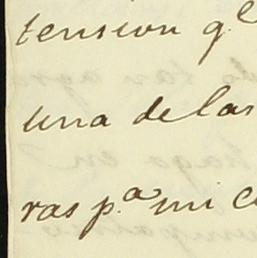 tension q.e
una de las
ras p.a mi